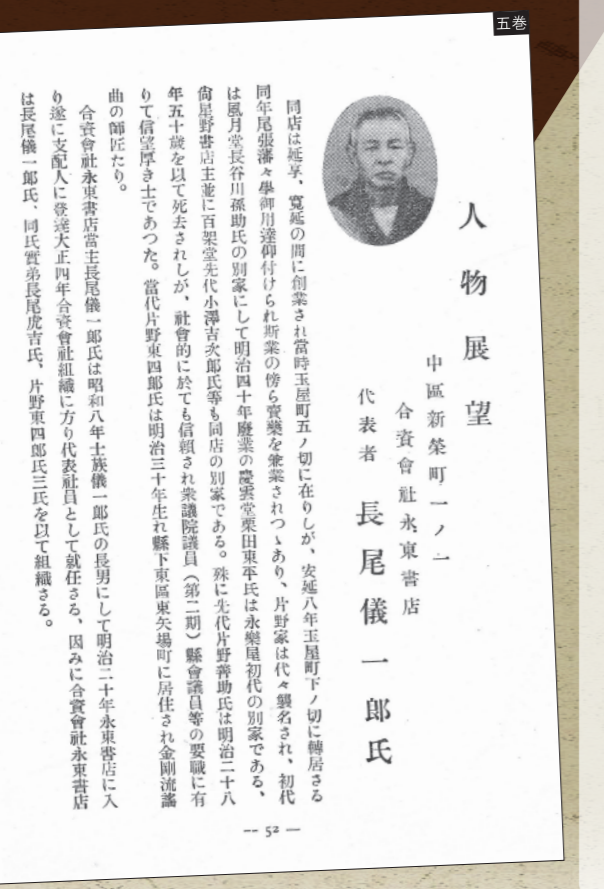 五巻
人物展望
中區新榮町一ノ一
合資會社永東書店
代表者 長尾儀一郎氏
同店は延享、寛延の間に創業され當時玉屋町五ノ切に在りしが、安延八年玉屋町下ノ切に轉居さる
同年尾張藩々學御用達仰付けられ斯業の傍ら賣藥を兼業されつゝあり、片野家は代々襲名され、初代
は風月堂長谷川孫助氏の別家にして明治四十年廢業の慶雲堂栗田東平氏は永樂屋初代の別家である、
尙星野書店主並に百架堂先代小澤吉次郎氏等も同店の別家である。殊に先代片野善助氏は明治二十八
年五十歳を以て死去されしが、社會的に於ても信頼され衆議院議員(第二期)縣會議員等の要職に有
りて信望厚き士であつた。當代片野東四郎氏は明治三十年生れ縣下東區東矢場町に居住され金剛流謠
曲の師匠たり。
合資會社永東書店當主長尾儀一郎氏は昭和八年士族儀一郎氏の長男にして明治二十年永東書店に入
り遂に支配人に登達大正四年合資會社組織に方り代表社員として就任さる、因みに合資會社永東書店
は長尾儀一郎氏、同氏實弟長尾虎吉氏、片野東四郎氏三氏を以て組織さる。
-- 52 --